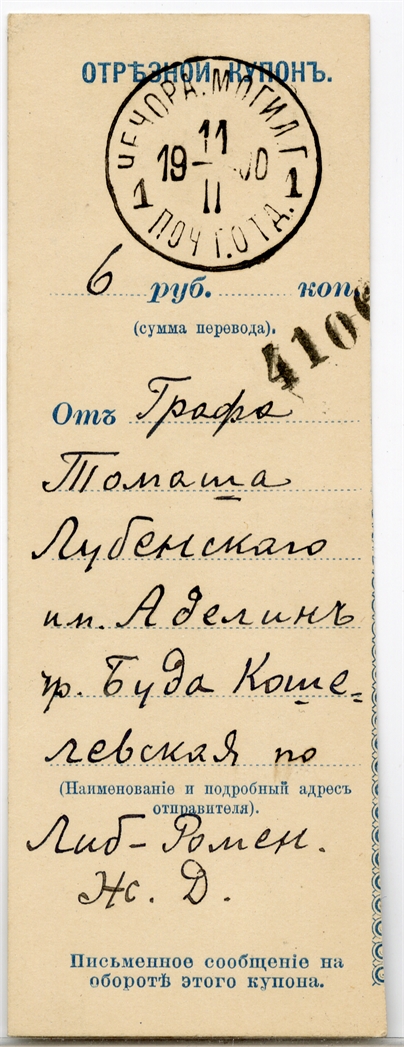 ОТРѢЗНОЙ КУПОНЪ.
ЧЕЧОРА. МОГИЛ. Г.
11
19 00
II
1 1
ПОЧТ. ОТД.
6 руб. коп.
(сумма перевода).
4106
Отъ Графа
Томаша
Лубенскаго
им. Аделинъ
чр. Буда Коше=
левская по
(Наименованіе и подробный адресъ
отправителя).
Либ-Ромен.
Ж. Д.
Письменное сообщеніе на
оборотѣ этого купона.